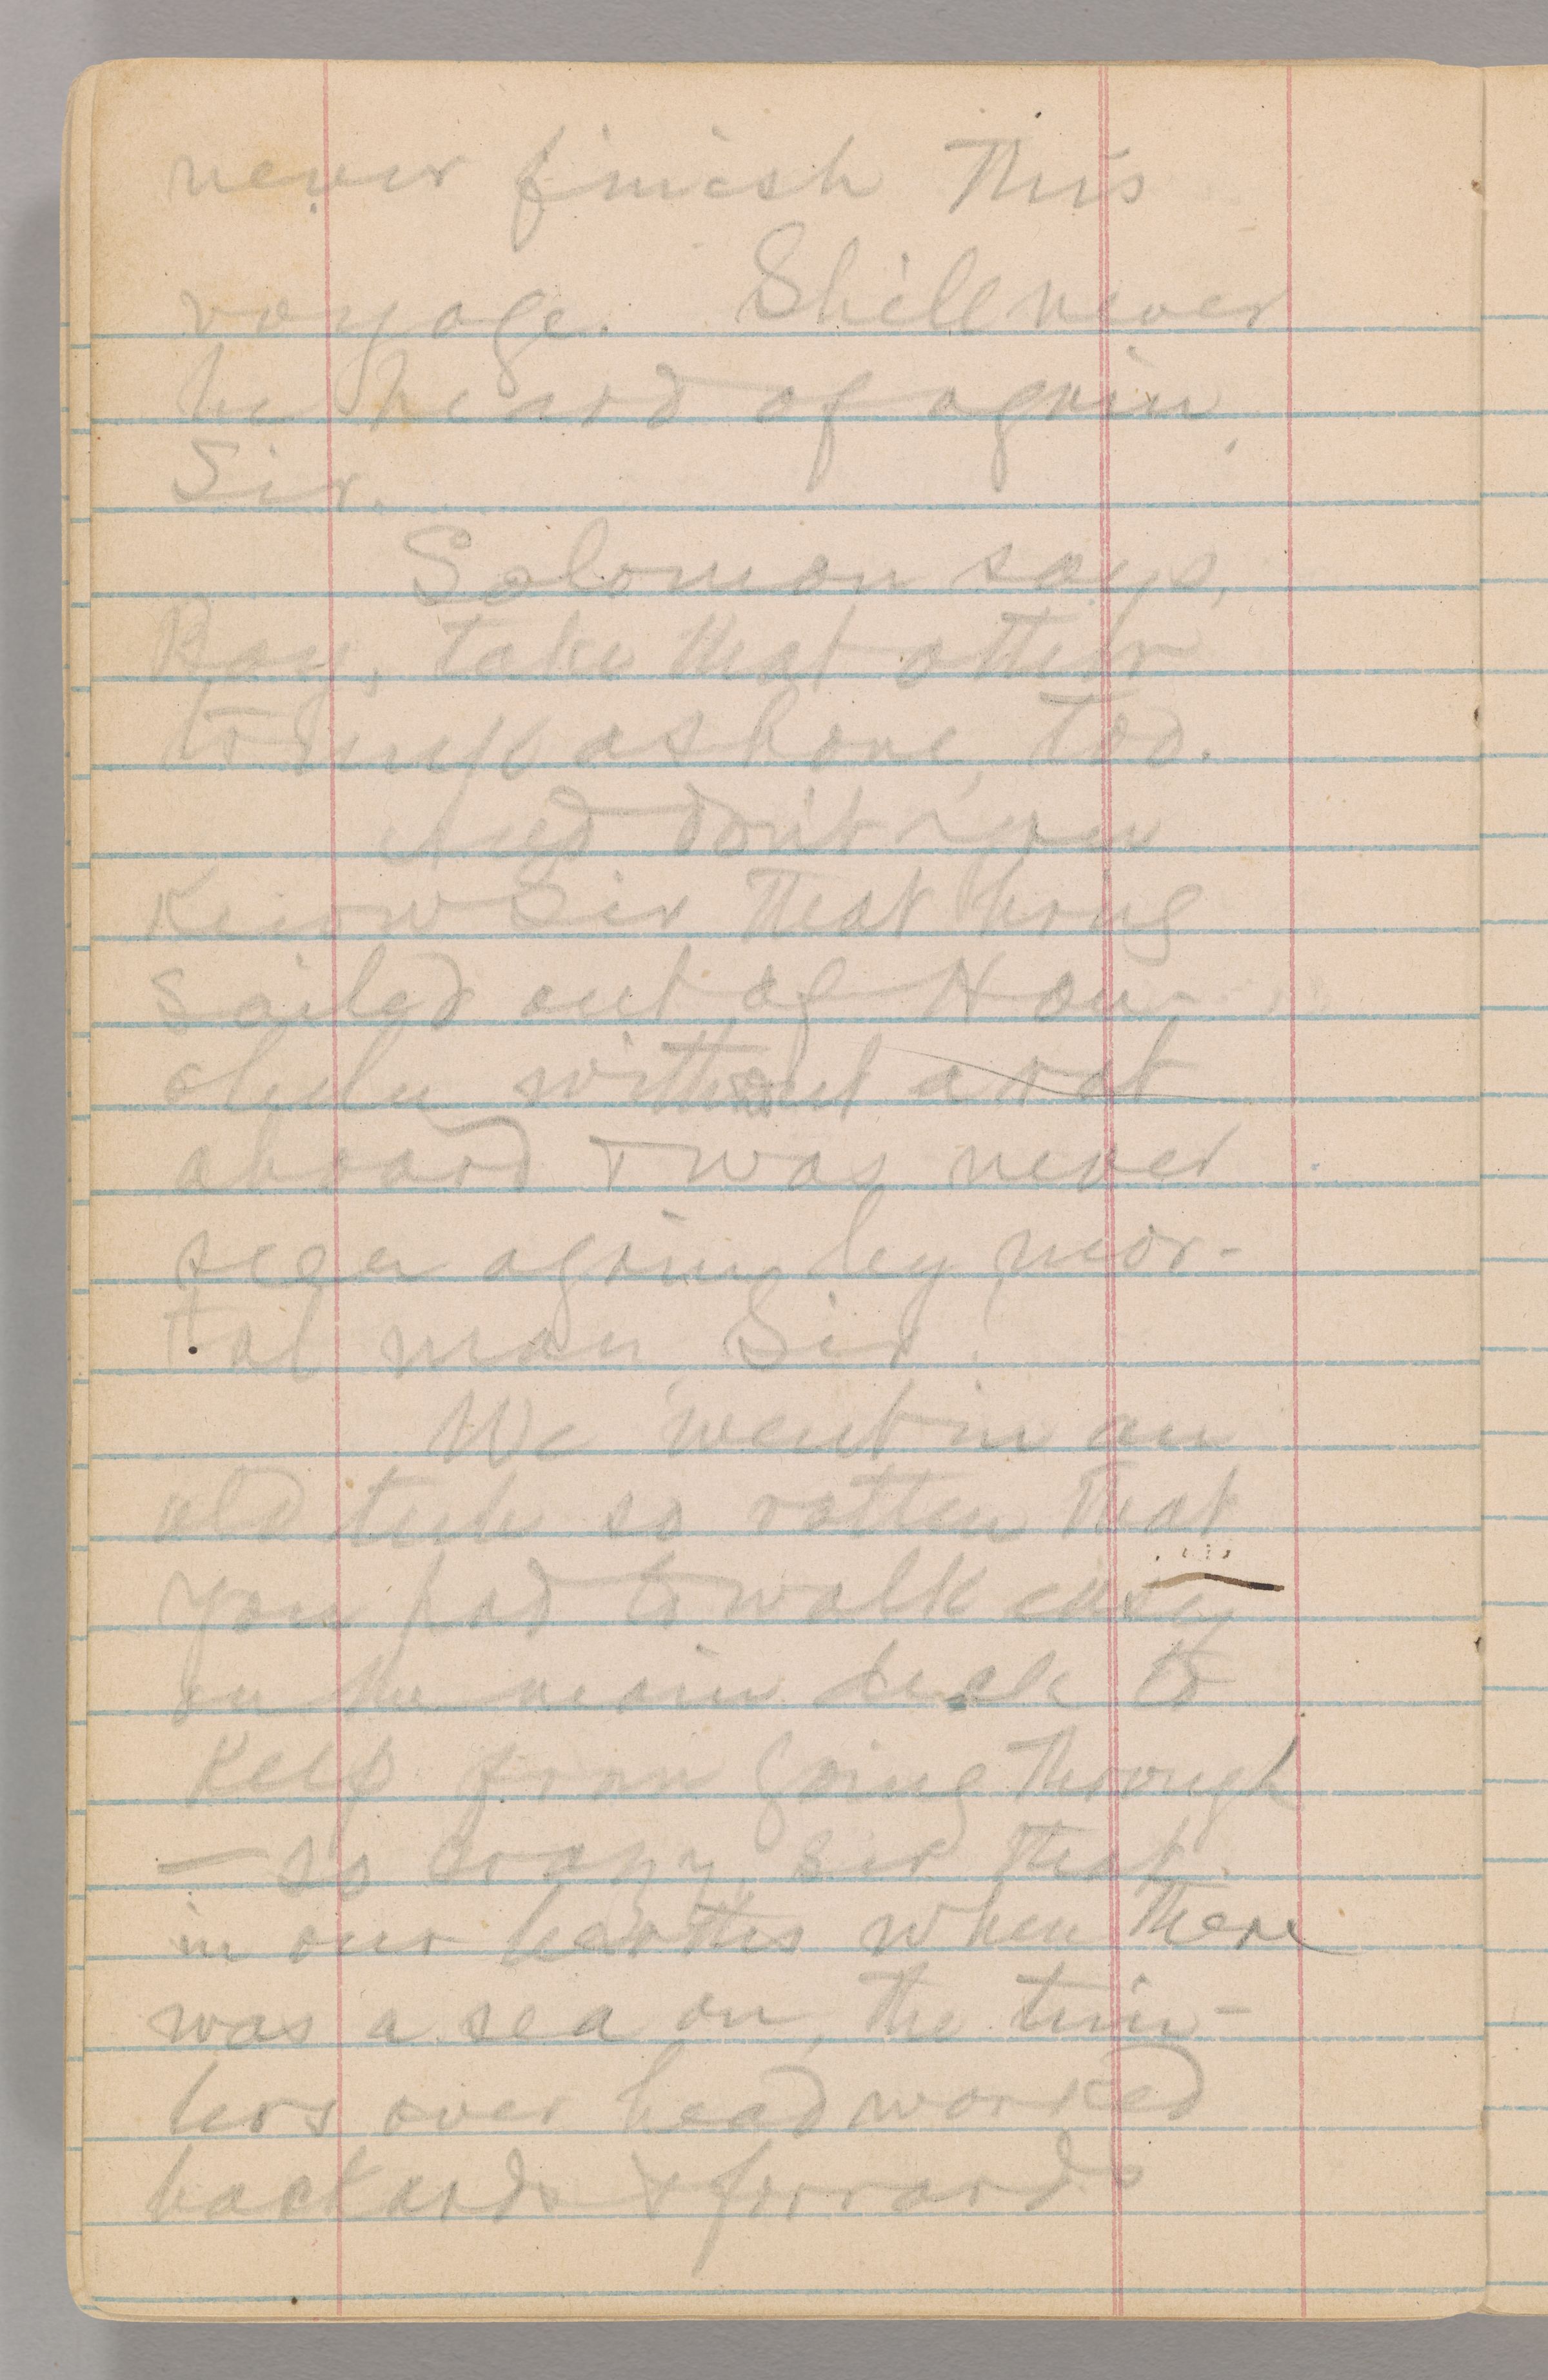 never finish this
voyage. She'll never
be heard of again,
Sir.
Solomon says,
Boy, take that other
trunk ashore, too.
And don't you
know Sir that brig
sailed out of Hon-
olulu without a rat
aboard & was never
seen again by mor-
tal man, Sir.
We went in an
old tub so rotten that
you had to walk easy
on the main deck to
keep from going through
— so crazy, sir that
in our berths when there
was a sea on, the tim-
bers over head worked
backards & forrards